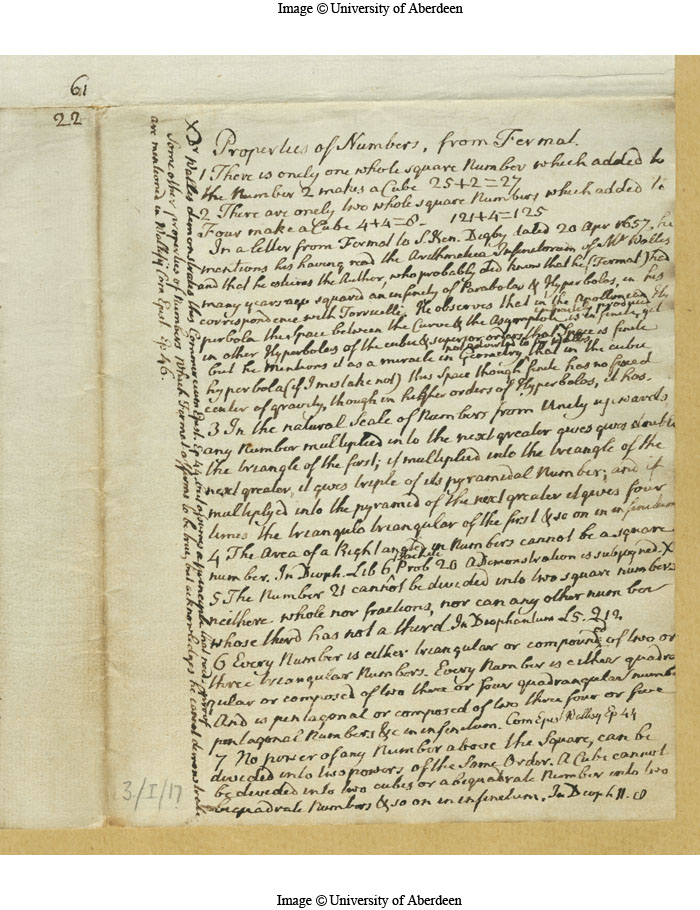 Image © University of Aberdeen
61
22
Properties of Numbers, from Fermat.
1 There is onely one whole square Number which added to
the Number 2 makes a Cube 25+2=27
2 There are onely two whole square Numbers which added to
Four make a Cube 4+4=8 121+4=125
In a letter from Fermat to S. Ken. Digby dated 20 Apr 1657, he
mentions his having read the Arithmetica Infinitorum of Mr Walles
and that he esteems the Author, who probably did know that he (Fermat) had
many years ago squared an infinity of Parabolas & Hyperbolas, in his
correspondence with Torricelli. He observes that in the Apollonian Hy
perbola the Space between the Curve & the Asymptote is infinite, yet
in other Hyperbolas of the cube & superior orders that Space is finite
but he mentions it as a miracle in Geometry that in the cubic
hyperbola (if I mistake not) this Space though finite has no fixed
center of gravity, though in higher orders of Hyperbolas, it has.
3 In the natural Scale of Numbers from Unity upwards
any Number multiplied into the next greater gives double
the triangle of the first; if multiplied into the triangle of the
next greater, it gives triple of its pyramidal Number; and if
multiplyed into the pyramid of the next greater it gives four
times the triangulo triangular of the first & so on in infinitum
4 The Area of a Right angled in Numbers cannot be a square
number. In Dioph. Lib 6 Prob 20 A Demonstration is subjoyned. X
5 The Number 21 cannot be divided into two square numbers
neither whole nor fractions, nor can any other number
whose third has not a third In Diophantum L5. 212
6 Every Number is either triangular or compound of two or
three triangular Numbers. Every Number is either quadran
gular or composed of two three or four quadrangular numbers
And is pentagonal or composed of two three four or five
pentagonal Numbers &c in infinitum. Com Epist Wallisy Ep 44
7 No power of any Number above the Square, can be
divided into two powers of the Same Order. A Cube cannot
be divided into two cubes or a biquadrate Number into two
biquadrate Numbers & so on in infinitum. In Dioph II. 8
X Dr Walles demonstrates this Commercium Epist. Ep 44
Some other properties of Numbers which Fermat affirms to be true, but acknowledges he cannot demonstrate
are mentioned in Wallisy Com Epist Ep 46.
3/I/17
Image © University of Aberdeen